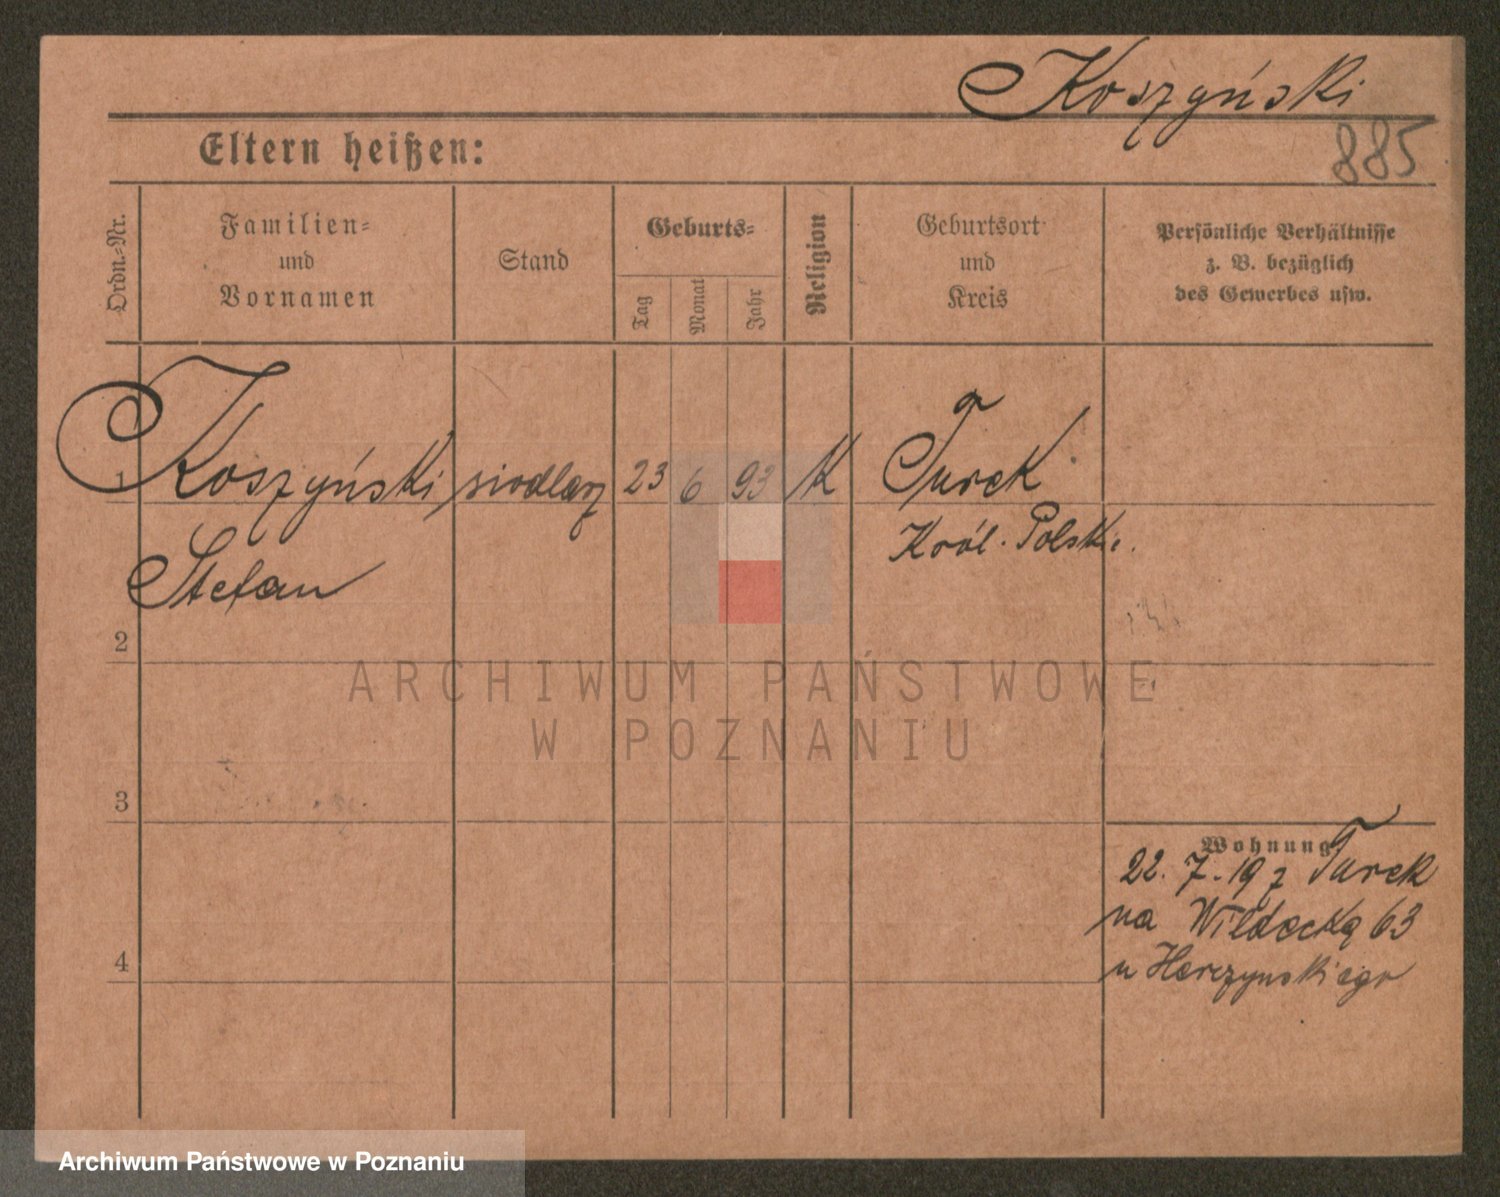 Koszyński
885
Eltern heißen:
Ordn.=Nr.
Familien=
und
Vornamen
Stand
Geburts=
Tag
Monat
Jahr
Religion
Geburtsort
und
Kreis
Persönliche Verhältnisse
z. B. bezüglich
des Gewerbes usw.
1 Koszyński siodlarz 23 6 93 K Turek
Król. Polskie.
Stefan
2
ARCHIWUM PAŃSTWOWE
W POZNANIU
3
Wohnung
22. 7. 19 z Turek
na Wildecką 63
u Harczynskiego
4
Archiwum Państwowe w Poznaniu